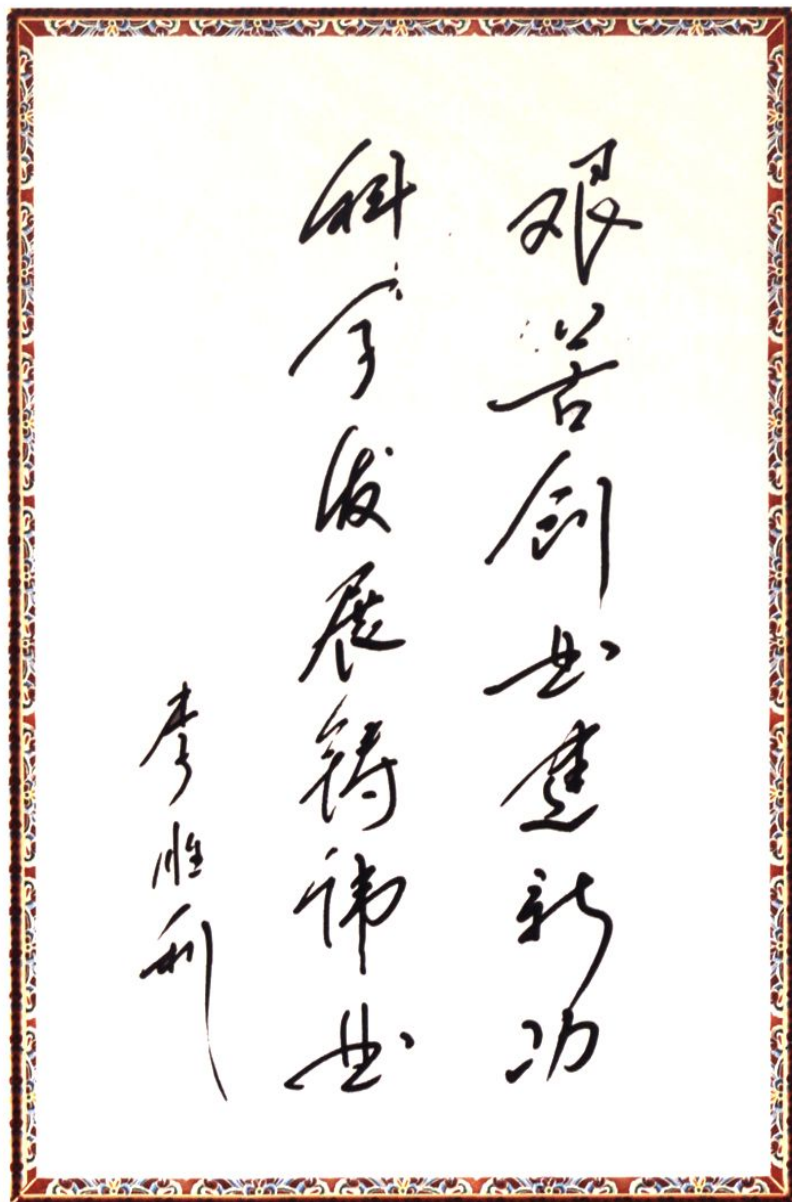 艰苦创业建新功
科学发展铸伟业
李胜利